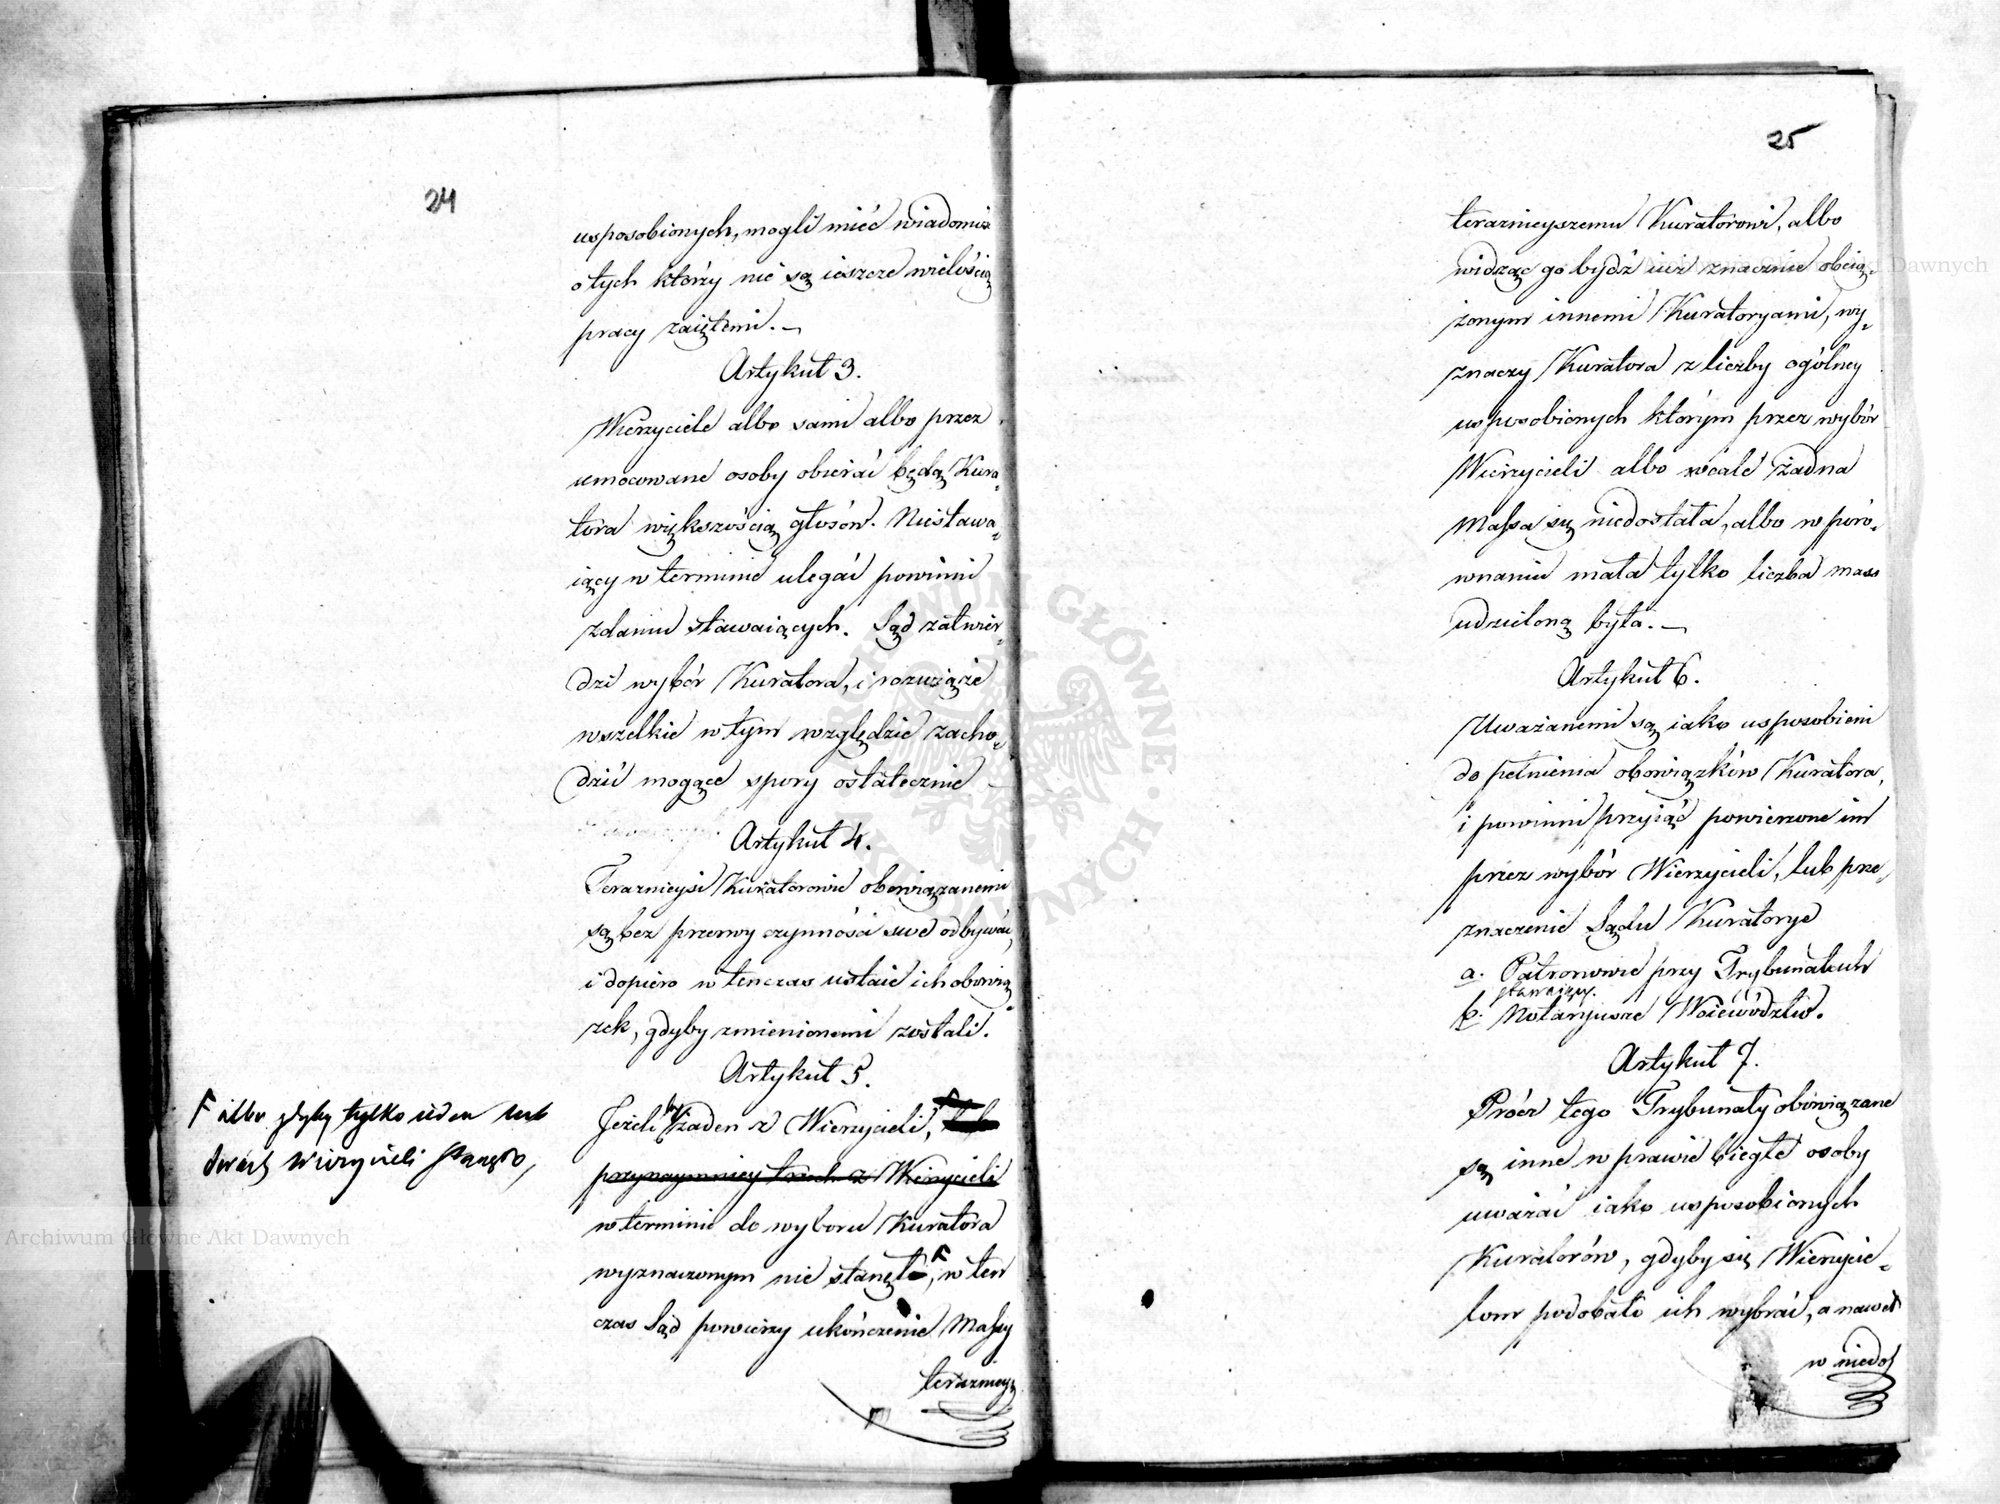 24
usposobionych, mogli mieć wiadomość
o tych którzy nie są ieszcze wielością
pracy zaiętemi. —
Artykuł 3.
Wierzyciele albo sami albo przez
umocowane osoby obierać będą Kura-
tora większością głosów. Niestawa-
iący w terminie ulegać powinni
zdaniu stawaiących. Sąd zatwier-
dzi wybór Kuratora, i rozwiąże
wszelkie w tym względzie zacho-
dzić mogące spory ostatecznie
Artykuł 4.
Teraznieysi Kuratorowie obowiązanemi
są bez przerwy czynności swe odbywać,
i dopiero w tenczas ustaie ich obowią-
zek, gdyby zmienionemi zostali.
Artykuł 5.
Jeżeli by żaden z Wierzycieli,
przynaymniey trzech z Wierzycieli
w terminie do wyboru Kuratora
wyznaczonym nie stanęło, F w ten
czas Sąd powierzy ukończenie Massy
terazniey-
F albo gdyby tylko ieden lub
dwóch Wierzycieli stanęło,
25
teraznieyszemu Kuratorowi, albo
widząc go bydź iuż znacznie obcią-
żonym innemi Kuratoryami, wy-
znaczy Kuratora z liczby ogólney
usposobionych którym przez wybór
Wierzycieli albo wcale żadna
Massa się niedostała, albo w poró-
wnaniu mała tylko liczba mass
udzieloną była. —
Artykuł 6.
Uważanemi są iako usposobieni
do pełnienia obowiązków Kuratora,
i powinni przyiąć powierzone im
przez wybór Wierzycieli, lub prze-
znaczenie Sądu Kuratorye
a. Patronowie przy Trybunałach
stawaiący.
b. Notaryusze Woiewództw.
Artykuł 7.
Prócz tego Trybunały obowiązane
są inne w prawie biegłe osoby
uważać iako usposobionych
Kuratorów, gdyby się Wierzycie-
lom podobało ich wybrać, a nawet
w niedos
Archiwum Główne Akt Dawnych
Archiwum Główne Akt Dawnych
ARCHIWUM GŁÓWNE AKT DAWNYCH